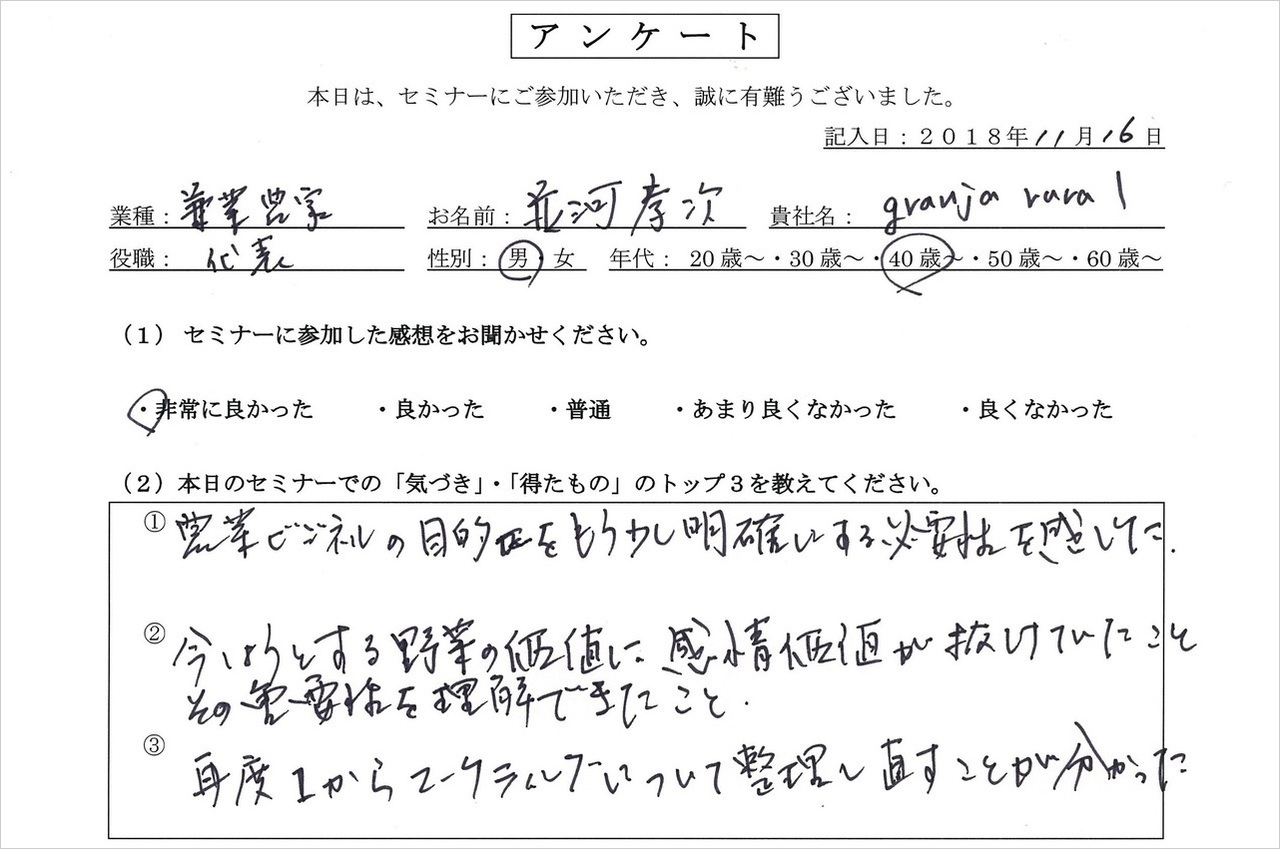 アンケート
本日は、セミナーにご参加いただき、誠に有難うございました。
記入日：２０１８年11月16日
業種：専業農家 お名前：並河孝次 貴社名：granja rural
役職：代表 性別：男・女 年代：20歳～・30歳～・40歳～・50歳～・60歳～
（１） セミナーに参加した感想をお聞かせください。
・非常に良かった ・良かった ・普通 ・あまり良くなかった ・良くなかった
（２）本日のセミナーでの「気づき」・「得たもの」のトップ３を教えてください。
① 農業ビジネスの目的をもう少し明確にする必要性を感じした.
② 今しようとする野菜の価値に感情価値が抜けていたこと
その重要性を理解できたこと.
③ 再度1からマーケティングについて整理し直すことが分かった